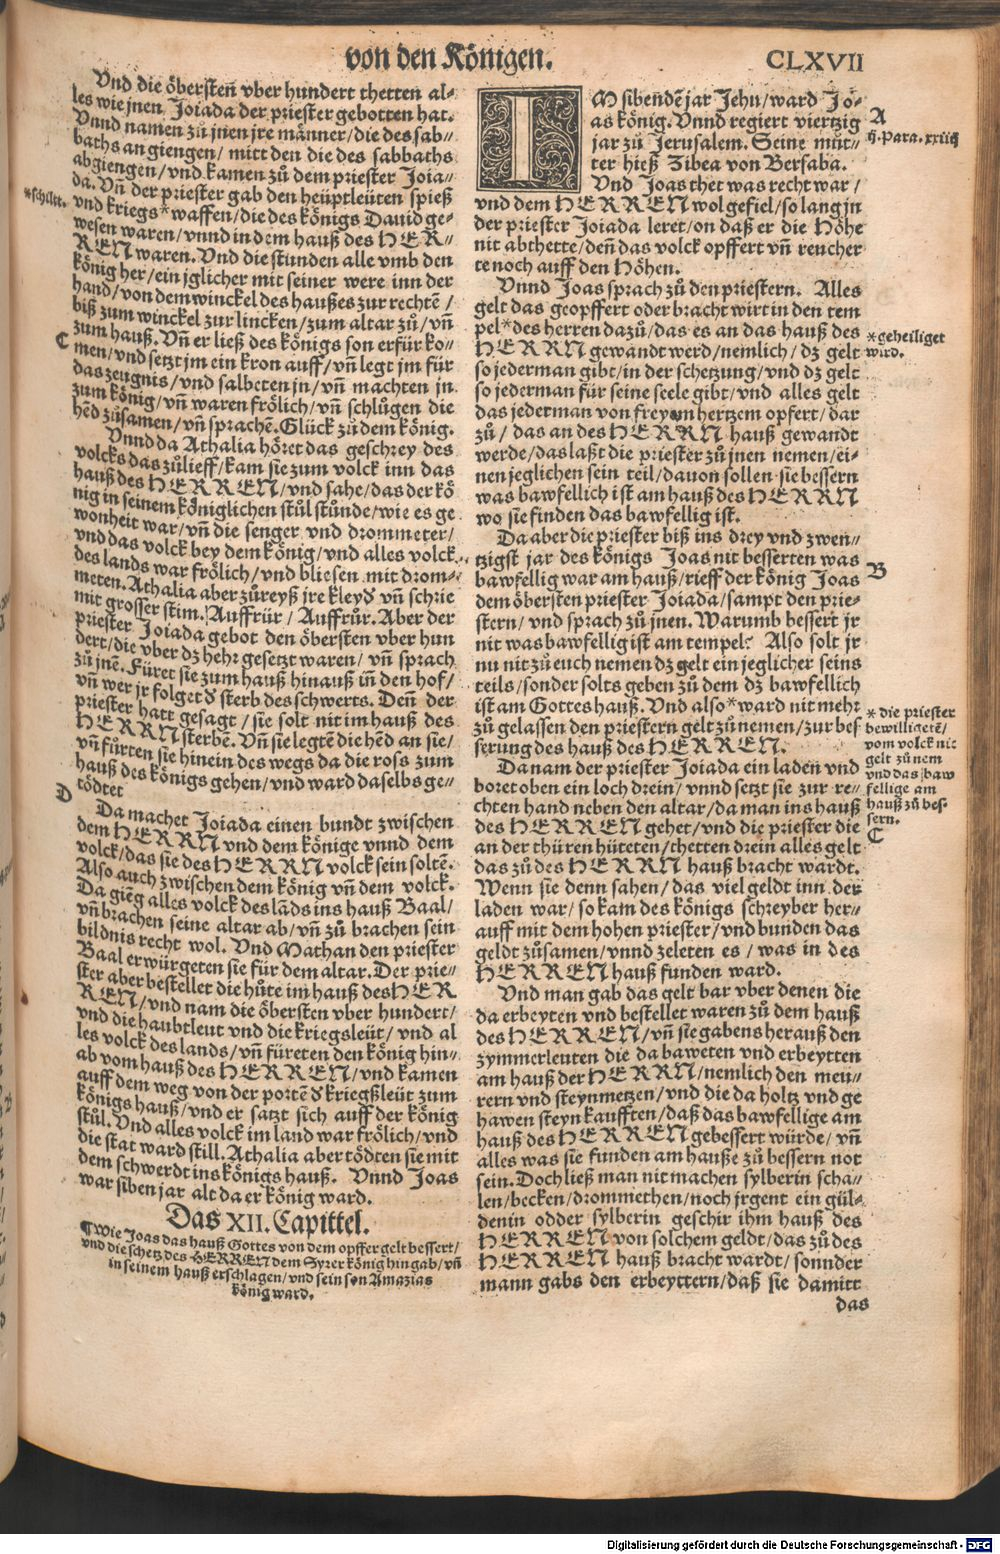 von den Königen.
CLXVII
Vnd die öbersteñ vber hundert thetten al-
les wie jnen Joiada der priester gebotten hat.
Vnnd namen zů jnen jre männer/die des sab-
baths an giengen/ mitt den die des sabbaths
abgiengen/vnd kamen zů dem priester Joia-
da. Vñ der priester gab den heüptleüten spieß
*schilt.
vnd kriegs*waffen/die des königs Dauid ge-
wesen waren/vnnd in dem hauß des HER-
REN waren. Vnd die stunden alle vmb den
könig her/ein jglicher mit seiner were inn der
hand/von dem winckel des haußes zur rechtē/
biß zum winckel zur lincken/zum altar zů/vñ
zum hauß. Vñ er ließ des königs son erfür ko-
C
men/vnd setzt jm ein kron auff/vñ legt jm für
das zeugnis/vnd salbeten jn/vñ machten jn
zum könig/vñ waren frölich/vñ schlůgen die
hēd zůsamen/vñ sprachē. Glück zů dem könig.
Vnnd da Athalia höret das geschrey des
volcks das zůlieff/kam sie zum volck inn das
hauß des HERREN/vnd sahe/das der kö
nig in seinem königlichen stůl stůnde/wie es ge
wonheit war/vñ die senger vnd drommeter/
vnd das volck bey dem könig/vnd alles volck
des lands war frölich/vnd bliesen mit drom-
meten. Athalia aber zůreyß jre kleyd vñ schrie
mit grosser stim. Auffrür/Auffrůr. Aber der
priester Joiada gebot den öbersten vber hun
dert/die vber dz hehr gesetzt waren/ vñ sprach
zů jnē. Füret sie zum hauß hinauß iñ den hof/
vñ wer jr folget d sterb des schwerts. Deñ der
priester hatt gesagt/sie solt nit im hauß des
HERRN sterbē. Vñ sie legtē die hēd an sie/
vñ fürten sie hinein des wegs da die ross zum
hauß des königs gehen/vnd ward daselbs ge-
tödtet
D
Da machet Joiada einen bundt zwischen
dem HERRN vnd dem könige vnnd dem
volck/das sie des HERRN volck sein soltē.
Also auch zwischen dem könig vñ dem volck.
Da gieng alles volck des lāds ins hauß Baal/
vñ brachen seine altar ab/vñ zů brachen sein
bildnis recht wol. Vnd Mathan den priester
Baal erwürgeten sie für dem altar. Der prie-
ster aber bestellet die hůte im hauß des HER
REN/vnd nam die öbersten vber hundert/
vnd die haubtleut vnd die kriegsleüt/vnd al
les volck des lands/vñ füreten den könig hin-
ab vom hauß des HERREN/vnd kamen
auff dem weg von der portē d kriegßleüt zum
königs hauß/vnd er satzt sich auff der könig
stůl. Vnd alles volck im land war frölich/vnd
die stat ward still. Athalia aber tödten sie mit
dem schwerdt ins königs hauß. Vnnd Joas
war siben jar alt da er könig ward.
Das XII. Capittel.
¶ Wie Joas das hauß Gottes von dem opffer gelt bessert/
vnd die schetz des HERREN dem Syrer könig hin gab/vñ
in seinem hauß erschlagen/vnd sein son Amazias
könig ward.
IM sibendē jar Jehu/ward Jo-
as könig. Vnnd regiert viertzig
jar zů Jerusalem. Seine můt-
ter hieß Zibea von Bersaba.
A
ij. Para. xxiiij
Vnd Joas thet was recht war/
vnd dem HERREN wol gefiel/so lang jn
der priester Joiada leret/on daß er die Höhe
nit abthette/deñ das volck opffert vñ reucher
te noch auff den Höhen.
Vnnd Joas sprach zů den priestern. Alles
gelt das geopffert oder bracht wirt in den tem
pel*des herren dazů/das es an das hauß des
HERRN gewandt werd/nemlich/dz gelt
*geheiliget
wird.
so jederman gibt/in der schetzung/vnd dz gelt
so jederman für seine seele gibt/vnd alles gelt
das jederman von freyen hertzem opfert/dar
zů/das an des HERRN hauß gewandt
werde/das laßt die priester zů jnen nemen/ei-
nen jeglichen sein teil/dauon sollen sie bessern
was bawfellich ist am hauß des HERRN
wo sie finden das bawfellig ist.
Da aber die priester biß ins drey vnd zwen-
tzigst jar des königs Joas nit besserten was
B
bawfellig war am hauß/rieff der könig Joas
dem öbersten priester Joiada/sampt den prie-
stern/vnd sprach zů jnen. Warumb bessert jr
nit was bawfellig ist am tempel? Also solt jr
nu nit zů euch nemen dz gelt ein jeglicher seins
teils/sonder solts geben zů dem dz bawfellich
ist am Gottes hauß. Vnd also*ward nit mehr
zů gelassen den priestern gelt zů nemen/zur bes
serung des hauß des HERREN.
* die priester
bewilligetē/
vom volck nit
gelt zů nem
vnd das baw
fellige am
hauß zů bes-
sern.
C
Da nam der priester Joiada ein laden vnd
boret oben ein loch drein/vnnd setzt sie zur re-
chten hand neben den altar/da man ins hauß
des HERREN gehet/vnd die priester die
an der thüren hüteten/thetten drein alles gelt
das zů des HERREN hauß bracht wardt.
Wenn sie denn sahen/das viel geldt inn der
laden war/so kam des königs schreyber her-
auff mit dem hohen priester/vnd bunden das
geldt zůsamen/vnnd zeleten es/was in des
HERREN hauß funden ward.
Vnd man gab das gelt bar vber denen die
da erbeyten vnd bestellet waren zů dem hauß
des HERREN/vñ sie gabens herauß den
zymmerleuten die da baweten vnd erbeytten
am hauß der HERRN/nemlich den meu-
rern vnd steynmetzen/vnd die da holtz vnd ge
hawen steyn kaufften/daß das bawfellige am
hauß des HERREN gebessert würde/vñ
alles was sie funden am hauße zů bessern not
sein. Doch ließ man nit machen sylberin scha-
len/becken/drommethen/noch jrgent ein gül-
denin odder sylberin geschir ihm hauß des
HERREN von solchem geldt/das zů des
HERREN hauß bracht wardt/sonnder
mann gabs den erbeyttern/daß sie damitt
das
Digitalisierung gefördert durch die Deutsche Forschungsgemeinschaft - DFG